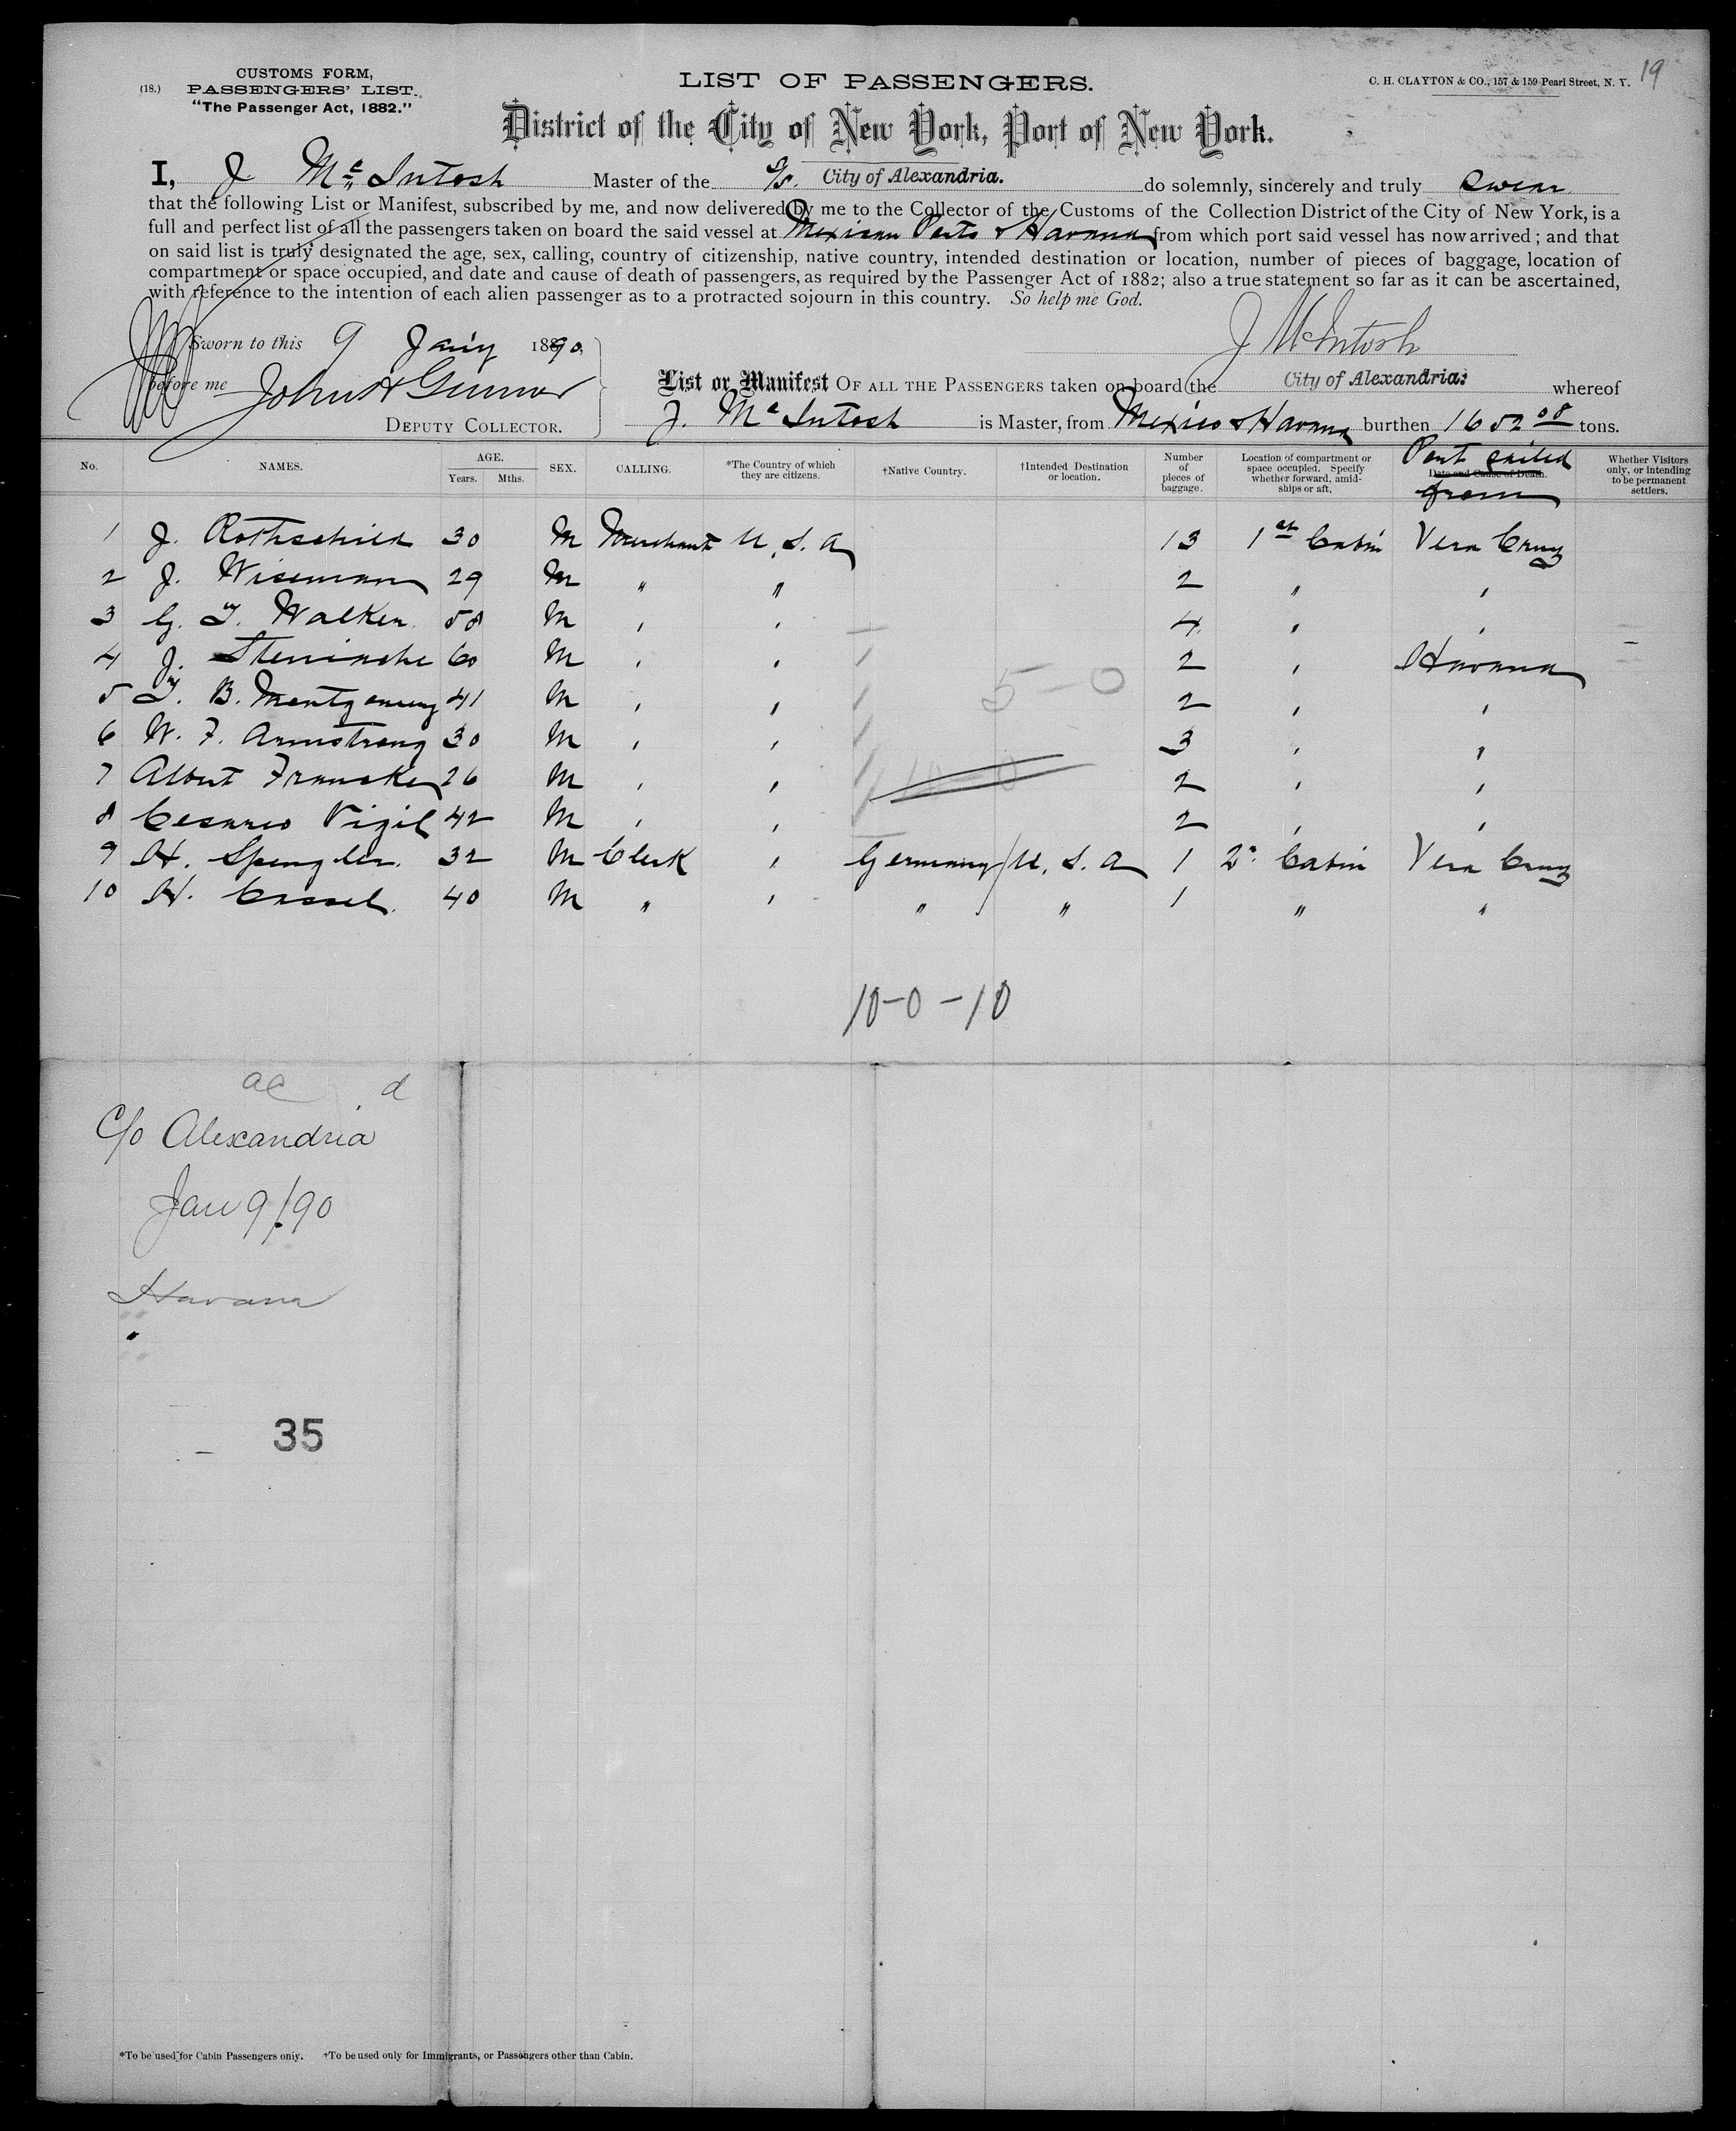 CUSTOMS FORM,
(18.) PASSENGERS' LIST.
"The Passenger Act, 1882."
LIST OF PASSENGERS.
C. H. CLAYTON & CO., 157 & 159 Pearl Street, N. Y. 19
District of the City of New York, Port of New York.
I, J Mc Intosh Master of the S/S. City of Alexandria. do solemnly, sincerely and truly swear
that the following List or Manifest, subscribed by me, and now delivered by me to the Collector of the Customs of the Collection District of the City of New York, is a
full and perfect list of all the passengers taken on board the said vessel at Mexican Ports & Havana from which port said vessel has now arrived; and that
on said list is truly designated the age, sex, calling, country of citizenship, native country, intended destination or location, number of pieces of baggage, location of
compartment or space occupied, and date and cause of death of passengers, as required by the Passenger Act of 1882; also a true statement so far as it can be ascertained,
with reference to the intention of each alien passenger as to a protracted sojourn in this country. So help me God.
J McIntosh
Sworn to this 9 Jany 1890
before me John
DEPUTY COLLECTOR.
List or Manifest OF ALL THE PASSENGERS taken on board the City of Alexandria: whereof
J. Mc Intosh is Master, from Mexico & Havana burthen 1652 08 tons.
No. NAMES. AGE. Years. Mths. SEX. CALLING. *The Country of which they are citizens. †Native Country. †Intended Destination or location. Number of pieces of baggage. Location of compartment or space occupied. Specify whether forward, amidships or aft. Date and Cause of Death. Port sailed from Whether Visitors only, or intending to be permanent settlers.
1 J. Rothschild 30 M Merchant U. S. A 13 1st Cabin Vera Cruz
2 J. Wiseman 29 M " " 2 " "
3 G. T. Walker 58 M " " 4 " "
4 J. 60 M " " 2 " Havana
5 T. B. Montgomery 41 M " " 5-0 2 " "
6 W. F. Armstrong 30 M " " 3 " "
7 Albert Franske 26 M " " 10-0 2 " "
8 Cesareo Vigil 42 M " " 2 " "
9 H. Spengler 32 M Clerk " Germany / U. S. A 1 2d Cabin Vera Cruz
10 H. Cassel 40 M " " " " 1 " "
10-0-10
ae d
C/o Alexandria
Jan 9/90
Havana
35
*To be used for Cabin Passengers only. †To be used only for Immigrants, or Passengers other than Cabin.